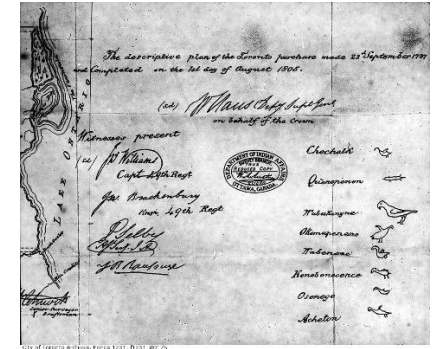 The descriptive plan of the Toronto purchase made 23d September 1787
and Completed on the 1st day of August 1805.
(sd) W Claus Depy Supt Genl
on behalf of the Crown
Witnesses present
(sd) J Williams
Capt 49th Regt
Jno Brackenbury
Ens 49th Regt
P. Selby
J B Rousseau
DEPARTMENT OF INDIAN AFFAIRS
TRUE
REDUCED COPY
OTTAWA, CANADA
Chechalk
Quenepenon
Wabukanyne
Okemapenesse
Wabenose
Kenebonecence
Osenego
Acheton
LAKE ONTARIO
City of Toronto Archives, Fonds 1231,